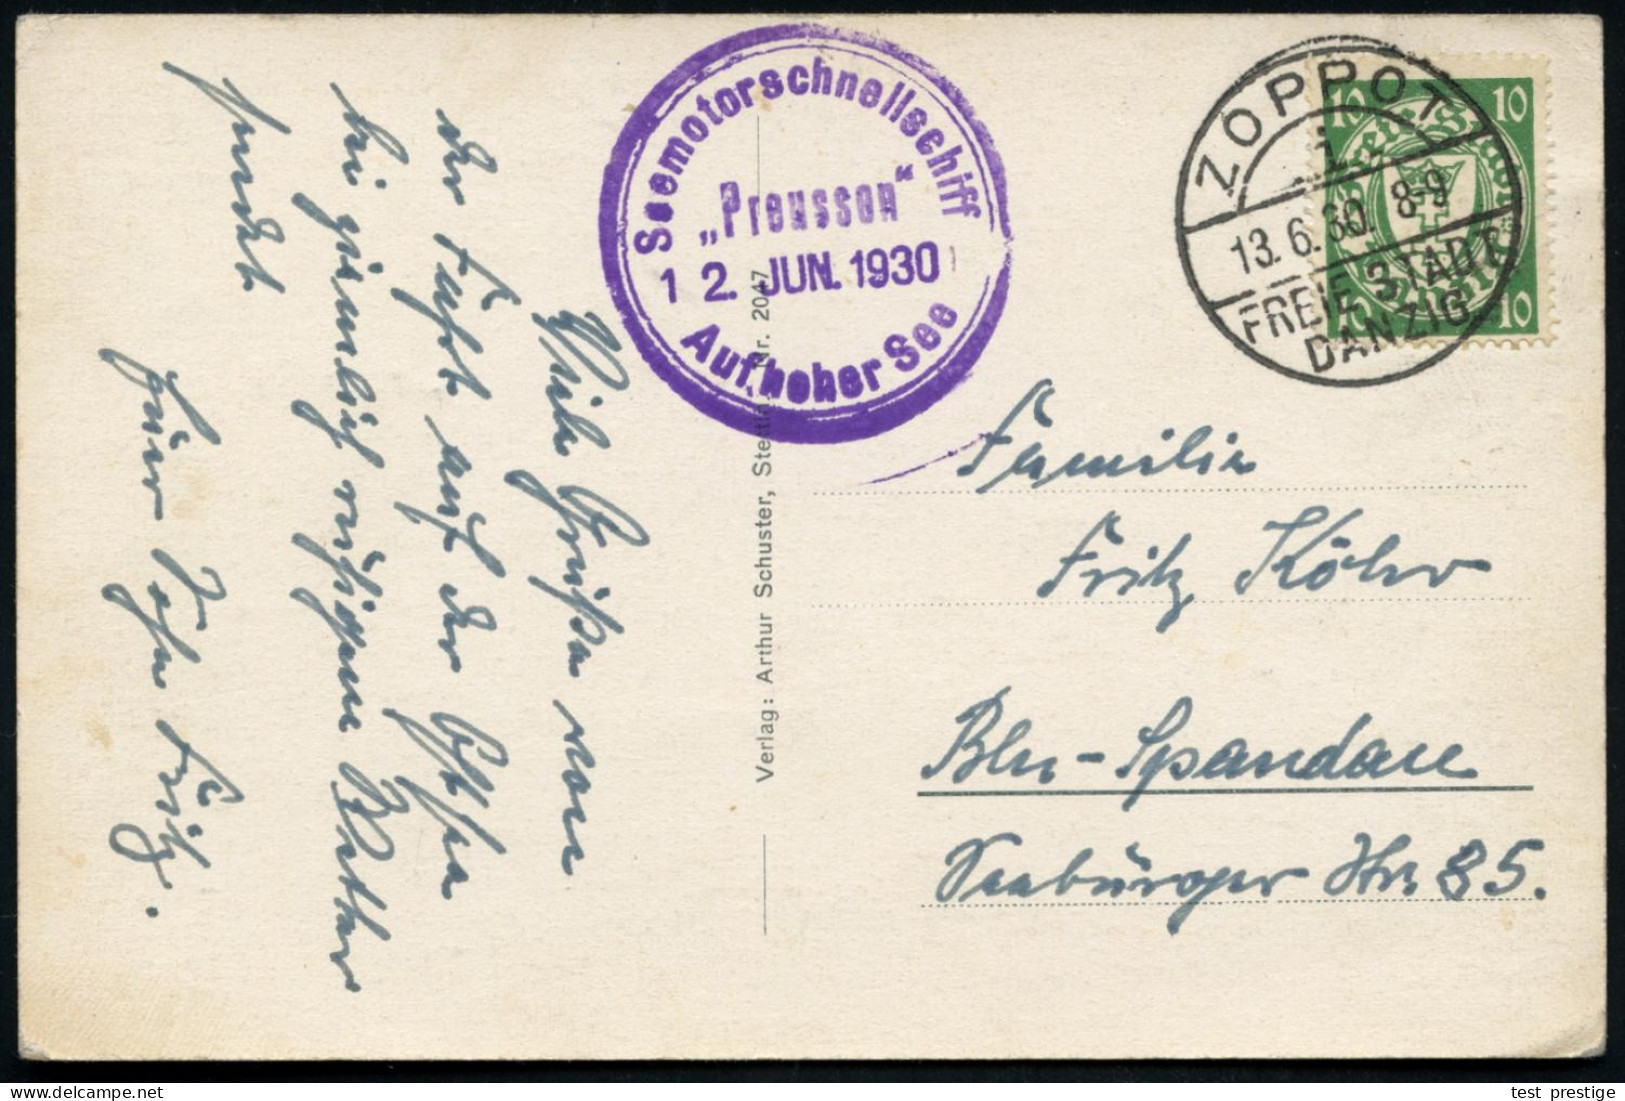 Seemotorschnellschiff
„Preussen“
12. JUN. 1930
Auf hoher See
ZOPPOT
1
13.6.30. 8-9
FREIE STADT
DANZIG
10 10
10 10
Viele Grüße von
der Fahrt auf der Ostsee
bei ziemlich ruhigem Wetter
sendet
Euer Sohn Fritz.
Verlag: Arthur Schuster, Stettin, Nr. 2047
Familie
Fritz Köhr
Bln-Spandau
Seeburger Str. 85.
test prestige